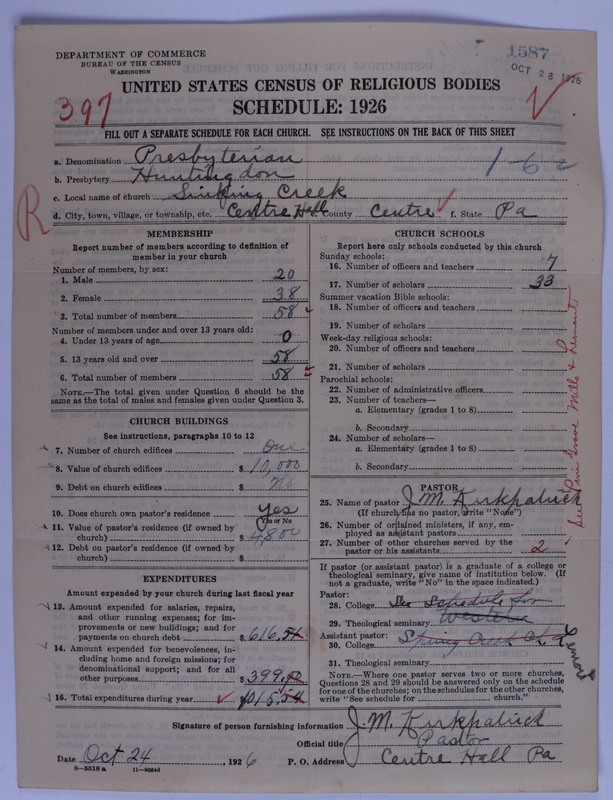 DEPARTMENT OF COMMERCE
BUREAU OF THE CENSUS
WASHINGTON
1587
OCT 28 1926
UNITED STATES CENSUS OF RELIGIOUS BODIES
397
SCHEDULE: 1926
FILL OUT A SEPARATE SCHEDULE FOR EACH CHURCH. SEE INSTRUCTIONS ON THE BACK OF THIS SHEET
a. Denomination Presbyterian
1-6
b. Presbytery Huntingdon
c. Local name of church Sinking Creek
R
d. City, town, village, or township, etc. Centre Hall County Centre f. State Pa
MEMBERSHIP
Report number of members according to definition of
member in your church
Number of members, by sex:
1. Male 20
2. Female 38
3. Total number of members 58
Number of members under and over 13 years old:
4. Under 13 years of age 0
5. 13 years old and over 58
6. Total number of members 58
NOTE.—The total given under Question 6 should be the
same as the total of males and females given under Question 3.
CHURCH BUILDINGS
See instructions, paragraphs 10 to 12
7. Number of church edifices One
8. Value of church edifices $ 10,000
9. Debt on church edifices $ No
10. Does church own pastor's residence Yes
Yes or No
11. Value of pastor's residence (if owned by
church) $ 4,800
12. Debt on pastor's residence (if owned by
church) $
EXPENDITURES
Amount expended by your church during last fiscal year
13. Amount expended for salaries, repairs,
and other running expenses; for im-
provements or new buildings; and for
payments on church debt $ 616.54
14. Amount expended for benevolences, in-
cluding home and foreign missions; for
denominational support; and for all
other purposes $ 399.00
15. Total expenditures during year 1015.54
CHURCH SCHOOLS
Report here only schools conducted by this church
Sunday schools:
16. Number of officers and teachers 7
17. Number of scholars 33
Summer vacation Bible schools:
18. Number of officers and teachers
19. Number of scholars
Week-day religious schools:
20. Number of officers and teachers
21. Number of scholars
Parochial schools:
22. Number of administrative officers
23. Number of teachers—
a. Elementary (grades 1 to 8)
b. Secondary
24. Number of scholars—
a. Elementary (grades 1 to 8)
b. Secondary
See Pine Grove Mills & Lemont
PASTOR
25. Name of pastor J.M. Kirkpatrick
(If church has no pastor, write "None")
26. Number of ordained ministers, if any, em-
ployed as assistant pastors
27. Number of other churches served by the
pastor or his assistants 2
If pastor (or assistant pastor) is a graduate of a college or
theological seminary, give name of institution below. (If
not a graduate, write "No" in the space indicated.)
Pastor:
28. College See Schedule for
29. Theological seminary Western
Assistant pastor:
30. College Spring Creek Ch. Lemont
31. Theological seminary
NOTE.—Where one pastor serves two or more churches,
Questions 28 and 29 should be answered only on the schedule
for one of the churches; on the schedules for the other churches,
write "See schedule for church."
Signature of person furnishing information J.M. Kirkpatrick
Official title Pastor
Date Oct 24, 1926 P. O. Address Centre Hall Pa
8—5518 a 11—9054d